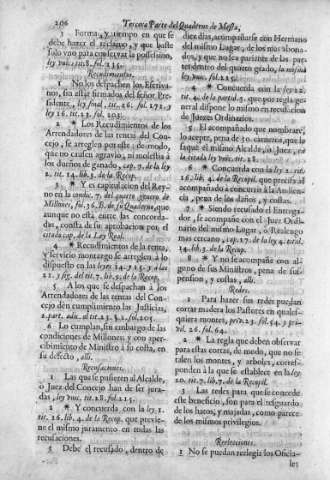 206 Tercera Parte del Quaderno de Mesta,
3 Forma, y tiempo en que se
debe hazer el reclamo, y que baste
solo uno para conservar la possession,
ley unic. tit. 8. fol. 215.
Recudimientos.
1 No los despachen los Efectivos,
sin estar firmados del señor Presidente,
ley final, tit. 26. fol. 272. y
ley 16. tit. 23. fol. 203.
2 * Los Recudimientos de los
Arrendadores de las rentas del Concejo,
se arreglen por este: de modo,
que no causen agravio, ni molestia à
los dueños de ganado, cap. 7. de la ley
2. tit. 14. lib. 3. de la Recop.
3 * Y es capitulacion del Reyno
en la condic. 7. del quarto genero de
Millones, fol. 36. B. de su Quaderno, que
aunque no està entre las concordadas,
consta de su aprobacion por el
citado cap. de la Ley Real.
4 * Recudimientos de la renta,
y servicio montazgo se arreglen à lo
dispuesto en las leyes 14. y 15. y à las
22. y sig. del tit. 27. lib. 9. de la Recop.
5 A los que se despachan à los
Arrendadores de las rentas del Concejo
den cumplimiento las Justicias,
2. part. adic. al tit. 23. §. 4. fol. 205.
6 Lo cumplan, sin embargo de las
condiciones de Millones; y con apercibimiento
de Ministro à su costa, en
su defecto, alli.
Recusaciones.
1 Las que se pusieren al Alcalde,
ò Juez del Concejo han de ser juradas,
ley unic. tit. 28. fol. 215.
2 * Y concuerda con la ley 1.
tit. 16. lib. 4. de la Recop. que previene
el mismo juramento en todas las
recusaciones.
3 Debe el recusado, dentro de
diez dias, acompañarse con Hermano
del mismo Lugar, de los mas abonados,
y que no sea pariente de las partes
dentro del quinto grado, la misma
ley unic. fol. 215.
4 * Concuerda con la ley 22.
tit. 4. de la partid. 3. que por regla general
dispone lo mismo en recusacion
de Juezes Ordinarios.
5 El acompañado que nombrare,
lo acepte, pena de 30. carneros, que le
saque el mismo Alcalde, ò Juez, en
la citada ley unic. tit. 28.
6 * Concuerda con la ley 2. tit.
16. lib. 4. de la Recopil. que precisa al
acompañado à concurrir à la Audiencia,
pena de los daños, y costas.
7 * Siendo recusado el Entregador,
se acompañe con el Juez Ordinario
del mismo Lugar, ò Realengo
mas cercano, cap. 17. de la ley 4. tit.
14. lib. 3. de la Recop.
8 * Y no se acompañe con alguno
de sus Ministros, pena de suspension,
y costas, alli.
Redes.
1 Para hazer sus redes puedan
cortar madera los Pastores en qualesquiera
montes, priv. 23. fol. 54. y privil.
26. fol. 64.
2 * La regla que deben observar
para estas cortas, de modo, que no se
talen los montes, y arboles, corresponden
à la que se establece en la ley
20. tit. 7. lib. 7. de la Recopil.
3 Las redes para que se concede
este beneficio, son para el resguardo
de los hatos, y majadas, como parece
de los mismos privilegios.
Reelecciones.
1 No se puedan reelegir los Oficia-
les